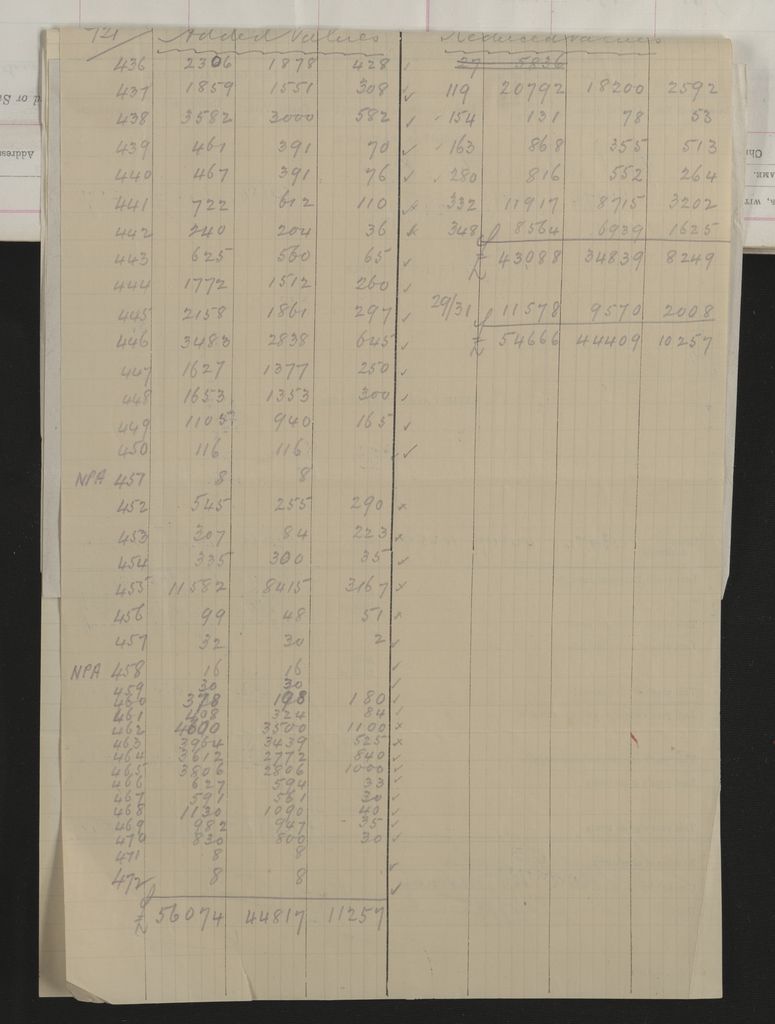 Added Values
436 2306 1878 428 ✓
437 1859 1551 308 ✓
438 3582 3000 582 ✓
439 461 391 70 ✓
440 467 391 76 ✓
441 722 612 110 ✓
442 240 204 36 x
443 625 560 65 ✓
444 1772 1512 260 ✓
445 2158 1861 297 ✓
446 3483 2838 645 ✓
447 1627 1377 250 ✓
448 1653 1353 300 ✓
449 1105 940 165 ✓
450 116 116 ✓
NPA 451 8 8
452 545 255 290 x
453 307 84 223 x
454 335 300 35 ✓
455 11582 8415 3167 x
456 99 48 51 x
457 32 30 2 ✓
NPA 458 16 16 ✓
459 30 30 ✓
460 378 198 180 ✓
461 408 324 84 ✓
462 4600 3500 1100 x
463 3964 3439 525 x
464 3612 2772 840 ✓
465 3806 2806 1000 ✓
466 627 594 33 ✓
467 591 561 30 ✓
468 1130 1090 40 ✓
469 982 947 35 ✓
470 830 800 30 ✓
471 8 8 ✓
472 8 8 ✓
56074 44817 11257
Reduced Values
27 5836
119 20792 18200 2592
154 131 78 53
163 868 355 513
280 816 552 264
332 11917 8715 3202
348 8564 6939 1625
43088 34839 8249
29/31 11578 9570 2008
54666 44409 10257
Address